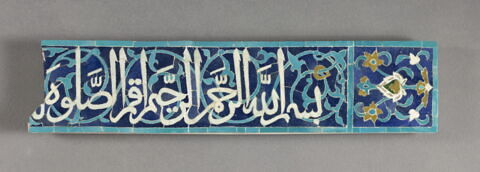 بسم الله الرحمن الرحيم اقم الصلوة